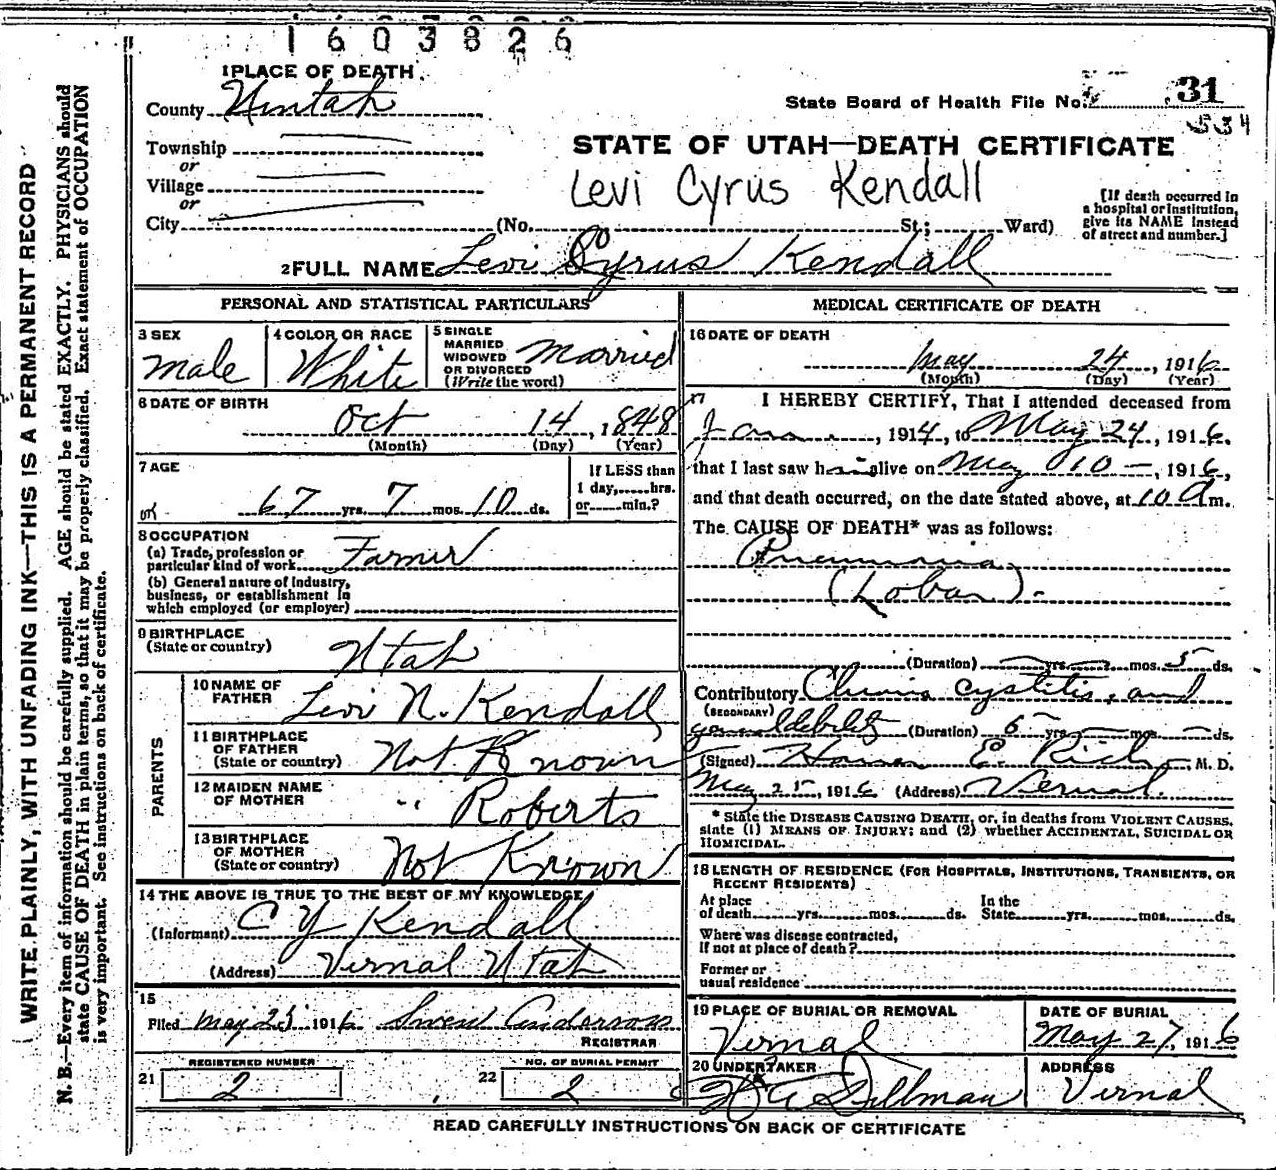 1603826
1 PLACE OF DEATH
County Uintah
State Board of Health File No. 31
534
Township
or
Village
or
City (No. St.; Ward)
STATE OF UTAH—DEATH CERTIFICATE
Levi Cyrus Kendall
[If death occurred in
a hospital or institution,
give its NAME instead
of street and number.]
2 FULL NAME Levi Cyrus Kendall
PERSONAL AND STATISTICAL PARTICULARS
3 SEX
Male
4 COLOR OR RACE
White
5 SINGLE
MARRIED
WIDOWED
OR DIVORCED
(Write the word)
Married
6 DATE OF BIRTH
Oct 14, 1848
(Month) (Day) (Year)
7 AGE
67 yrs. 7 mos. 10 ds.
If LESS than
1 day, hrs.
or min.?
8 OCCUPATION
(a) Trade, profession or
particular kind of work Farmer
(b) General nature of Industry,
business, or establishment in
which employed (or employer)
9 BIRTHPLACE
(State or country)
Utah
PARENTS
10 NAME OF
FATHER
Levi N. Kendall
11 BIRTHPLACE
OF FATHER
(State or country)
Not Known
12 MAIDEN NAME
OF MOTHER
" Roberts
13 BIRTHPLACE
OF MOTHER
(State or country)
Not Known
14 THE ABOVE IS TRUE TO THE BEST OF MY KNOWLEDGE
(Informant) C Y Kendall
(Address) Vernal Utah
15
Filed May 25 1916 Swen Anderson
REGISTRAR
REGISTERED NUMBER
21 2
NO. OF BURIAL PERMIT
22 2
MEDICAL CERTIFICATE OF DEATH
16 DATE OF DEATH
May 24, 1916
(Month) (Day) (Year)
17 I HEREBY CERTIFY, That I attended deceased from
Jan , 1914, to May 24, 1916,
that I last saw him alive on May 10 —, 1916,
and that death occurred, on the date stated above, at 10 A m.
The CAUSE OF DEATH* was as follows:
Pneumonia
(Lobar).
(Duration) yrs. mos. 5 ds.
Contributory Chronic cystitis, and
(SECONDARY)
general debility (Duration) 5 yrs. mos. ds.
(Signed) Homer E. Rich, M. D.
May 25, 1916 (Address) Vernal.
* State the DISEASE CAUSING DEATH, or, in deaths from VIOLENT CAUSES,
state (1) MEANS OF INJURY; and (2) whether ACCIDENTAL, SUICIDAL OR
HOMICIDAL.
18 LENGTH OF RESIDENCE (FOR HOSPITALS, INSTITUTIONS, TRANSIENTS, OR
RECENT RESIDENTS)
At place In the
of death yrs. mos. ds. State yrs. mos. ds.
Where was disease contracted,
If not at place of death?
Former or
usual residence
19 PLACE OF BURIAL OR REMOVAL
Vernal
DATE OF BURIAL
May 27, 1916
20 UNDERTAKER
Dillman
ADDRESS
Vernal
READ CAREFULLY INSTRUCTIONS ON BACK OF CERTIFICATE
WRITE PLAINLY, WITH UNFADING INK—THIS IS A PERMANENT RECORD
N. B.—Every item of information should be carefully supplied. AGE should be stated EXACTLY. PHYSICIANS should
state CAUSE OF DEATH in plain terms, so that it may be properly classified. Exact statement of OCCUPATION
is very important. See instructions on back of certificate.